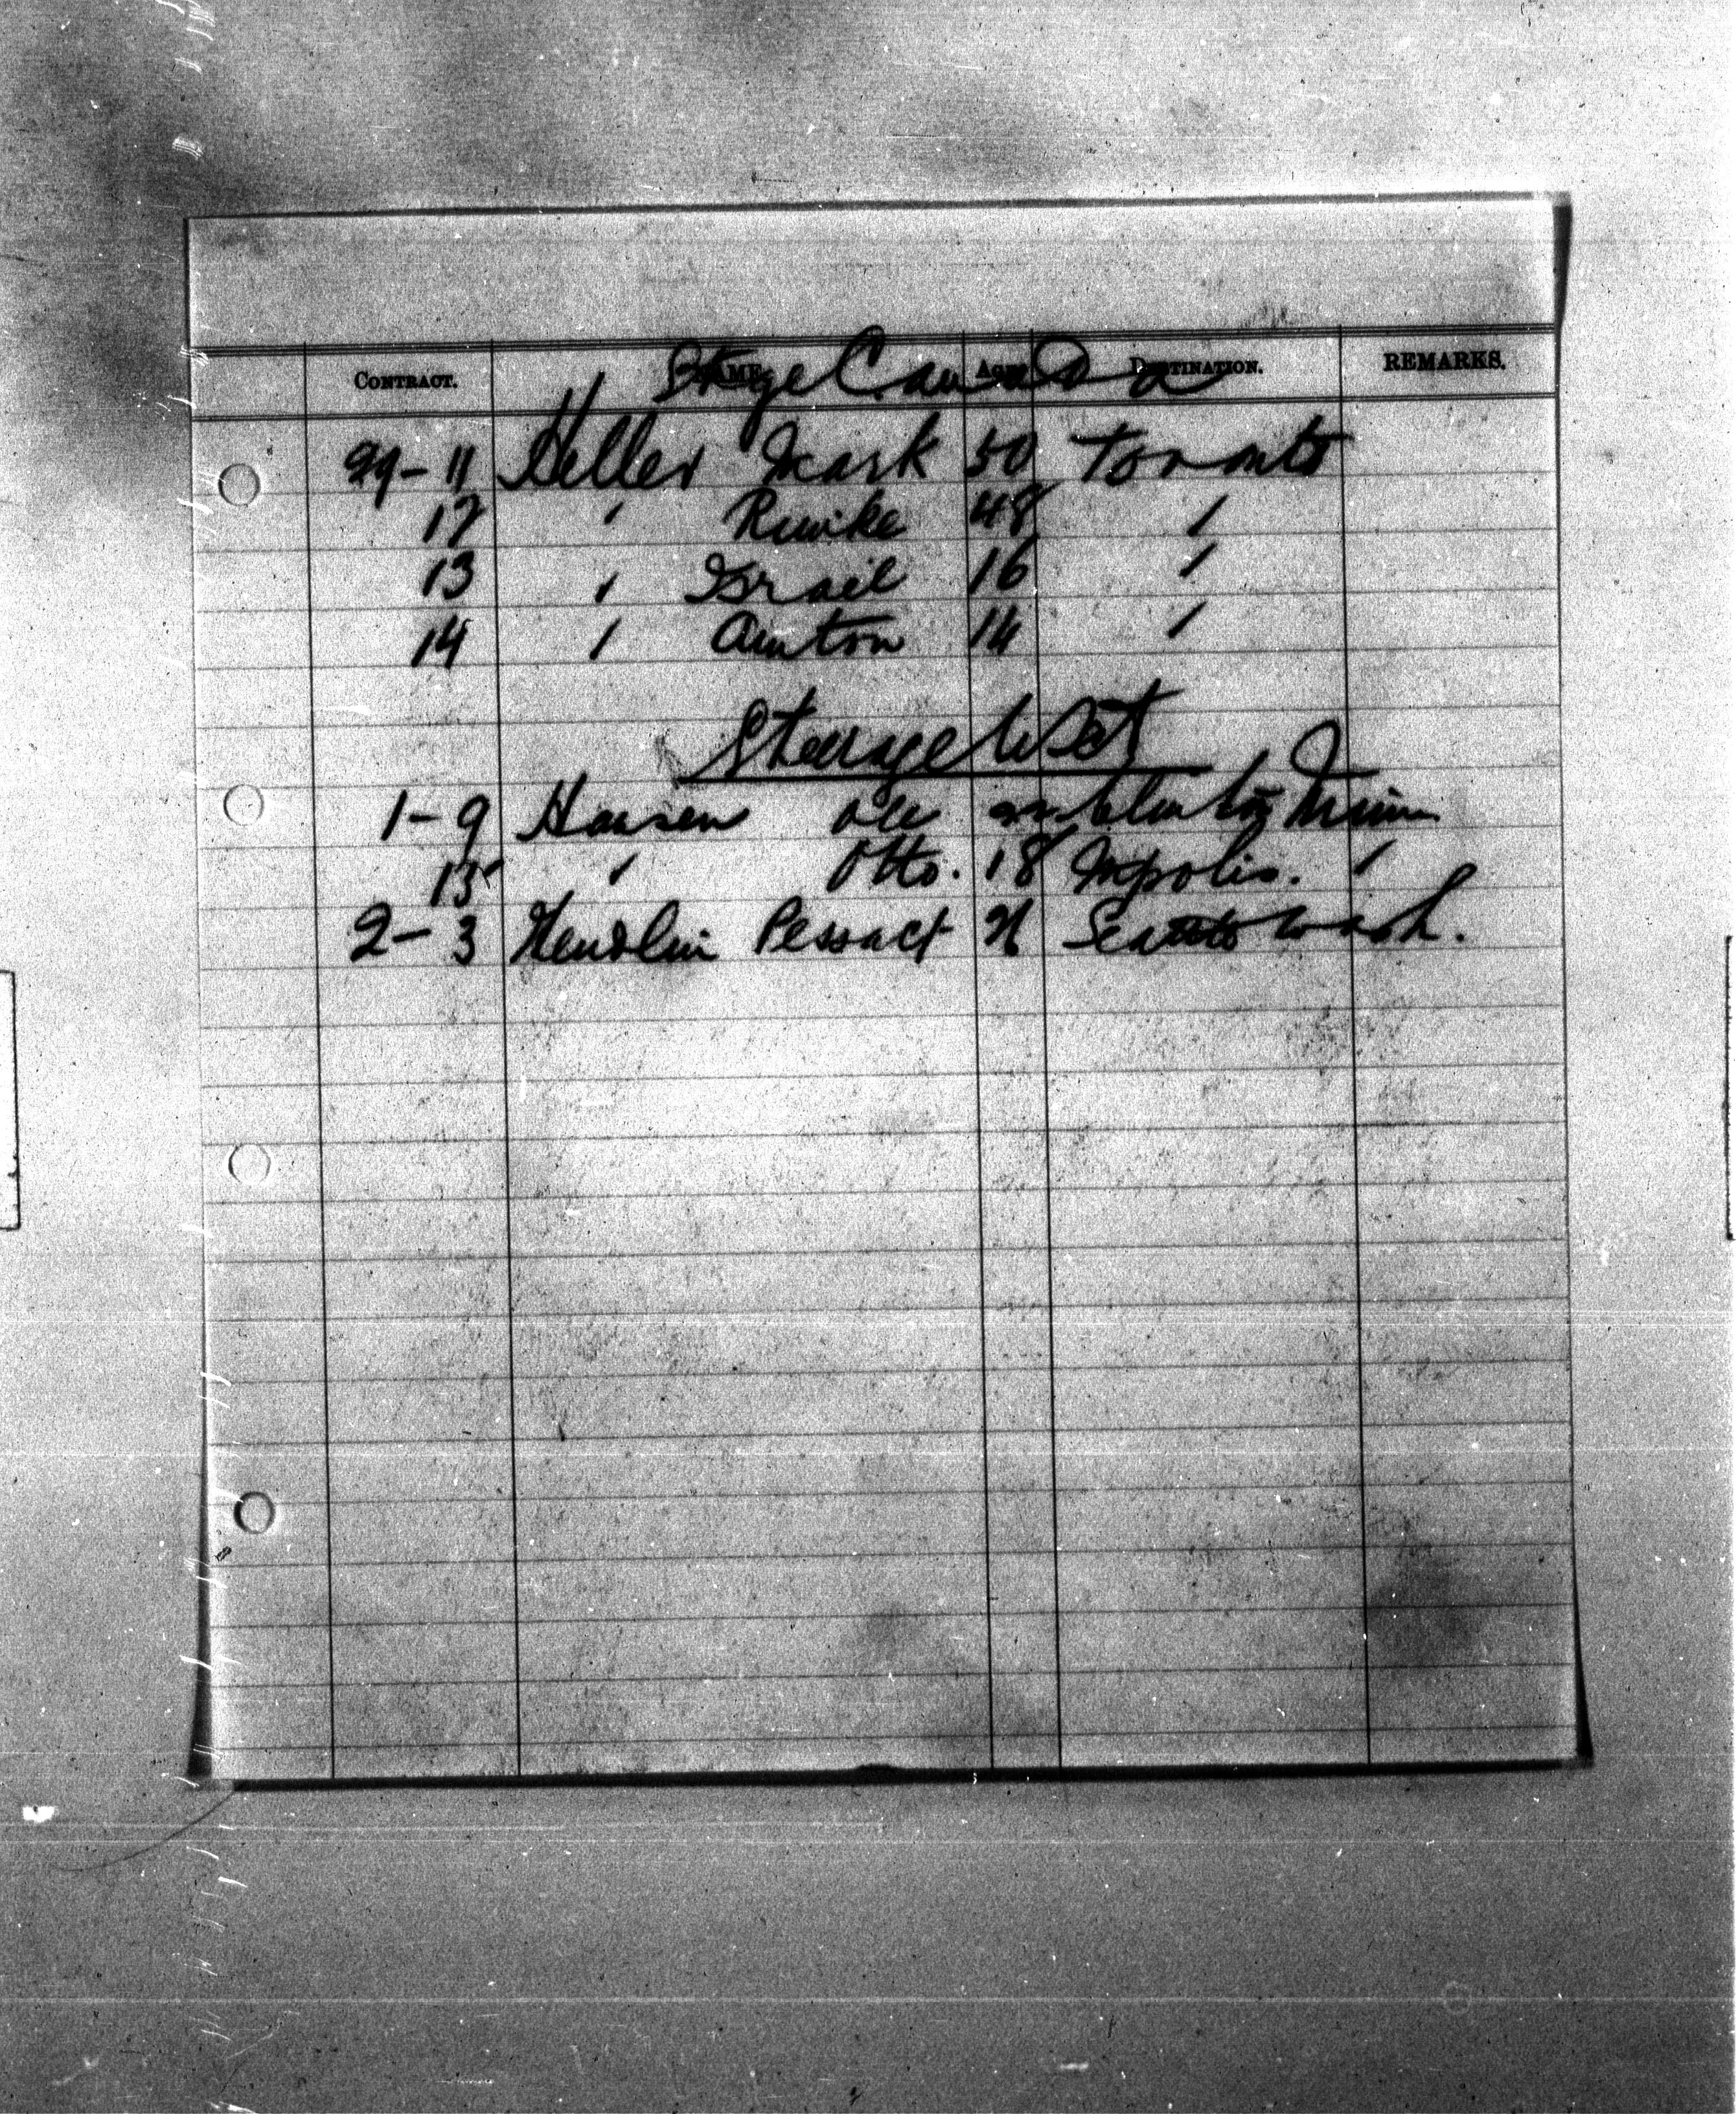 CONTRACT. NAME. AGE. DESTINATION. REMARKS.
Stege Canada
29-11 Heller Mark 50 Toronto
12 " Rewike 48 "
13 " Israil 16 "
14 " Anton 14 "
Steerage West
1-9 Hansen Ole Minn.
15 " Otto. 18 Mpolis. "
2-3 Hendlin Pessach Seattle Wash.